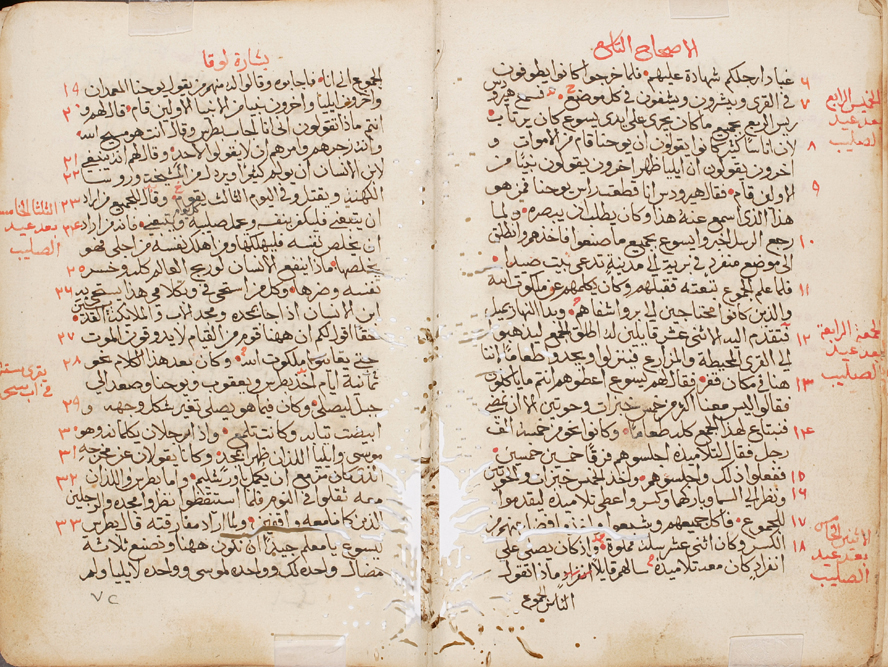 الاصحاح التاسع
غبار ارجلكم شهادة عليهم فلما خرجوا كانوا يطوفون ٦
في القرى ويبشرون ويشفون في كل موضع فسمع هيرودس ٧
ريس الربع بجميع ما كان يجري على يدي يسوع كان يرتاب
لان اناسا كثير كانوا يقولون ان يوحنا قام من الاموات و ٨
اخرون يقولون ان ايليا ظهر اخرون يقولون نبيا من
الاولين قام فقال هيرودس انا قطعت راس يوحنا فمن هو ٩
هذا الذي اسمع عنه هذا وكان يطلب ان يبصره ولما
رجع الرسل اخبروا يسوع بجميع ما صنعوا فاخذهم وانطلق ١٠
الى موضع منفرد في برية الى مدينة تدعى بيت صيدا
فلما علم الجموع تبعته فقبلهم وكان يكلمهم عن ملكوت الله ١١
والذين كانوا محتاجين الى برو اشفاهم وبدا النهار يميل
فتقدم اليه الاثنى عشر قايلين له اطلق الجمع ليذهبوا ١٢
الى القرى المحيطة والمزارع فينزلوا ويجدوا طعاما لاننا
هنا في مكان قفر فقال لهم يسوع اعطوهم انتم ما ياكلون ١٣
فقالوا ليس معنا اكثر من خمس خبزات وحوتين الا ان نمضي
فنبتاع لهذا الجمع كله طعاما وكانوا نحو من خمسة الف ١٤
رجل فقال لتلاميذه اجلسوهم فرقا خمسين خمسين
ففعلوا ذلك واجلسوهم واخذ الخمس خبزات والحوتين ١٥
ونظر الى السما وباركها وكسر واعطى تلاميذه ليقدموا ١٦
للجموع فاكل جميعهم وشبعوا ١٧
الكسر وكان اثنى عشر سلة مملوة واذ كان يصلي على ١٨
انفراد كان معه تلاميذه سالهم قايلا ماذا تقول
الناس الجموع
الخميس الرابع
بعد عيد
الصليب
الجمعة الرابعة
بعد عيد
الصليب
الاثنين الخامس
بعد عيد
الصليب
بشارة لوقا
الجموع اني انا فاجابوه وقالوا له منهم من يقول يوحنا المعمدان ١٩
واخرون ايليا واخرون نبيا من الانبيا الاولين قام قال لهم و ٢٠
انتم ماذا تقولون اني انا اجاب بطرس وقال انت هو مسيح الله
وانه زجرهم وامرهم ان لا يقولوا لاحد وقال لهم انه ينبغي ٢١
لابن الانسان ان يولم كثيرا ويرذل من المشيخة وروسا ٢٢
الكهنة ويقتل وفي اليوم الثالث يقوم وقال للجميع من اراد ٢٣
ان يتبعني فليكفر بنفسه وحمل صليبه ويتبعني فانه من اراد ٢٤
ان يخلص نفسه فليهلكها ومن اهلك نفسه من اجلي فهو
يخلصها ماذا ينفع الانسان لو ربح العالم كله وخسر ٢٥
نفسه وضرها وكل من استحى بي وبكلامي هذا يستحي به ٢٦
ابن الانسان اذا جا بمجده ومجد الاب وملايكته القديسين
حقا اقول لكم ان ههنا قوم من القيام لا يذوقون الموت ٢٧
حتى يعاينوا ملكوت الله وكان بعد هذا الكلام نحو ٢٨
ثمانية ايام اخذ بطرس ويعقوب ويوحنا وصعد الى
جبل ليصلي وكان فيما هو يصلي تغير شكل وجهه و ٢٩
ابيضت ثيابه وكانت تلمع واذا رجلان يكلمانه وهو ٣٠
موسى وايليا اللذان ظهرا بمجد وكانا يقولان عن مخرجه ٣١
الذي كان مزمع ان يكمل باورشليم واما بطرس واللذان ٣٢
معه ثقلوا في النوم فلما استيقظوا نظروا مجده والرجلين
الذين كانا معه واقفين ولما اراد مفارقته قال بطرس ٣٣
ليسوع يا معلم جيد ان نكون ههنا ونصنع ثلاثة
مضال واحده لك وواحده لموسى وواحده لايليا ولم
الثلثا الخامس
بعد عيد
الصليب